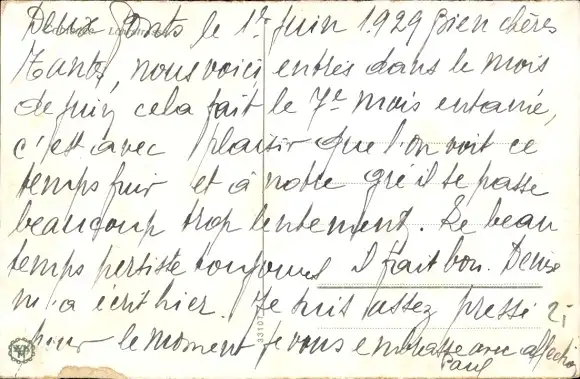 Deux Ponts le 1er Juin 1.929 Bien chères
Tantes, nous voici entrés dans le mois
de juin cela fait le 7e mois entamé,
c'est avec plaisir que l'on voit ce
temps fuir et à notre gré il se passe
beaucoup trop lentement. Le beau
temps persiste toujours il fait bon. Denise
m'a écrit hier. Je suis assez pressé
pour le moment je vous embrasse avec affection
Paul
33107